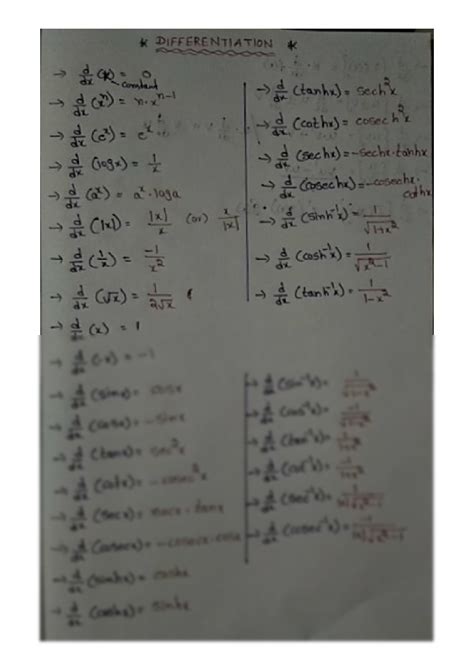 * DIFFERENTIATION *
→ d/dx (k) = 0
constant
→ d/dx (xⁿ) = n·xⁿ⁻¹
→ d/dx (eˣ) = eˣ
→ d/dx (logx) = 1/x
→ d/dx (aˣ) = aˣ·loga
→ d/dx (|x|) = |x|/x (or) x/|x|
→ d/dx (1/x) = -1/x²
→ d/dx (√x) = 1/2√x
→ d/dx (x) = 1
→ d/dx (-x) = -1
→ d/dx (sinx) = cosx
→ d/dx (cosx) = -sinx
→ d/dx (tanx) = sec²x
→ d/dx (cotx) = -cosec²x
→ d/dx (secx) = secx·tanx
→ d/dx (cosecx) = -cosecx·cotx
→ d/dx (sinhx) = coshx
→ d/dx (coshx) = sinhx
→ d/dx (tanhx) = sech²x
→ d/dx (cothx) = cosech²x
→ d/dx (sechx) = -sechx·tanhx
→ d/dx (cosechx) = -cosechx·
cothx
→ d/dx (sinh⁻¹x) = 1/√1+x²
→ d/dx (cosh⁻¹x) = 1/√x²-1
→ d/dx (tanh⁻¹x) = 1/1-x²
→ d/dx (sin⁻¹x) = 1/√1-x²
→ d/dx (cos⁻¹x) = -1/√1-x²
→ d/dx (tan⁻¹x) = 1/1+x²
→ d/dx (cot⁻¹x) = -1/1+x²
→ d/dx (sec⁻¹x) = 1/|x|√x²-1
→ d/dx (cosec⁻¹x) = -1/|x|√x²-1